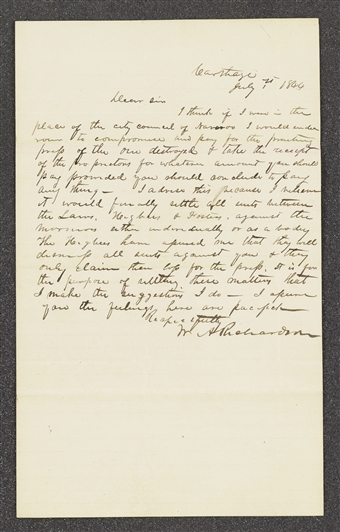 Carthage
July 7th 1844
Dear Sir
I think if I were in the
place of the city council of Nauvoo I would endea
vour to compromise and pay for the printing
press of the one destroyed & take the receipt
of the proprietors for whatever amount you should
pay provided you should conclude to pay
any thing — I advise this because I believe
it would finally settle all suits between
the Laws, Higbees & Fosters, against the
mormons either individually or as a body
The Higbees have assured me that they will
dismiss all suits against you & they
only claim their loss for the press. It is for
the purpose of settling these matters that
I make the suggestions I do — I assure
you the feelings here are pacific
Respectfully
W. A Richardson